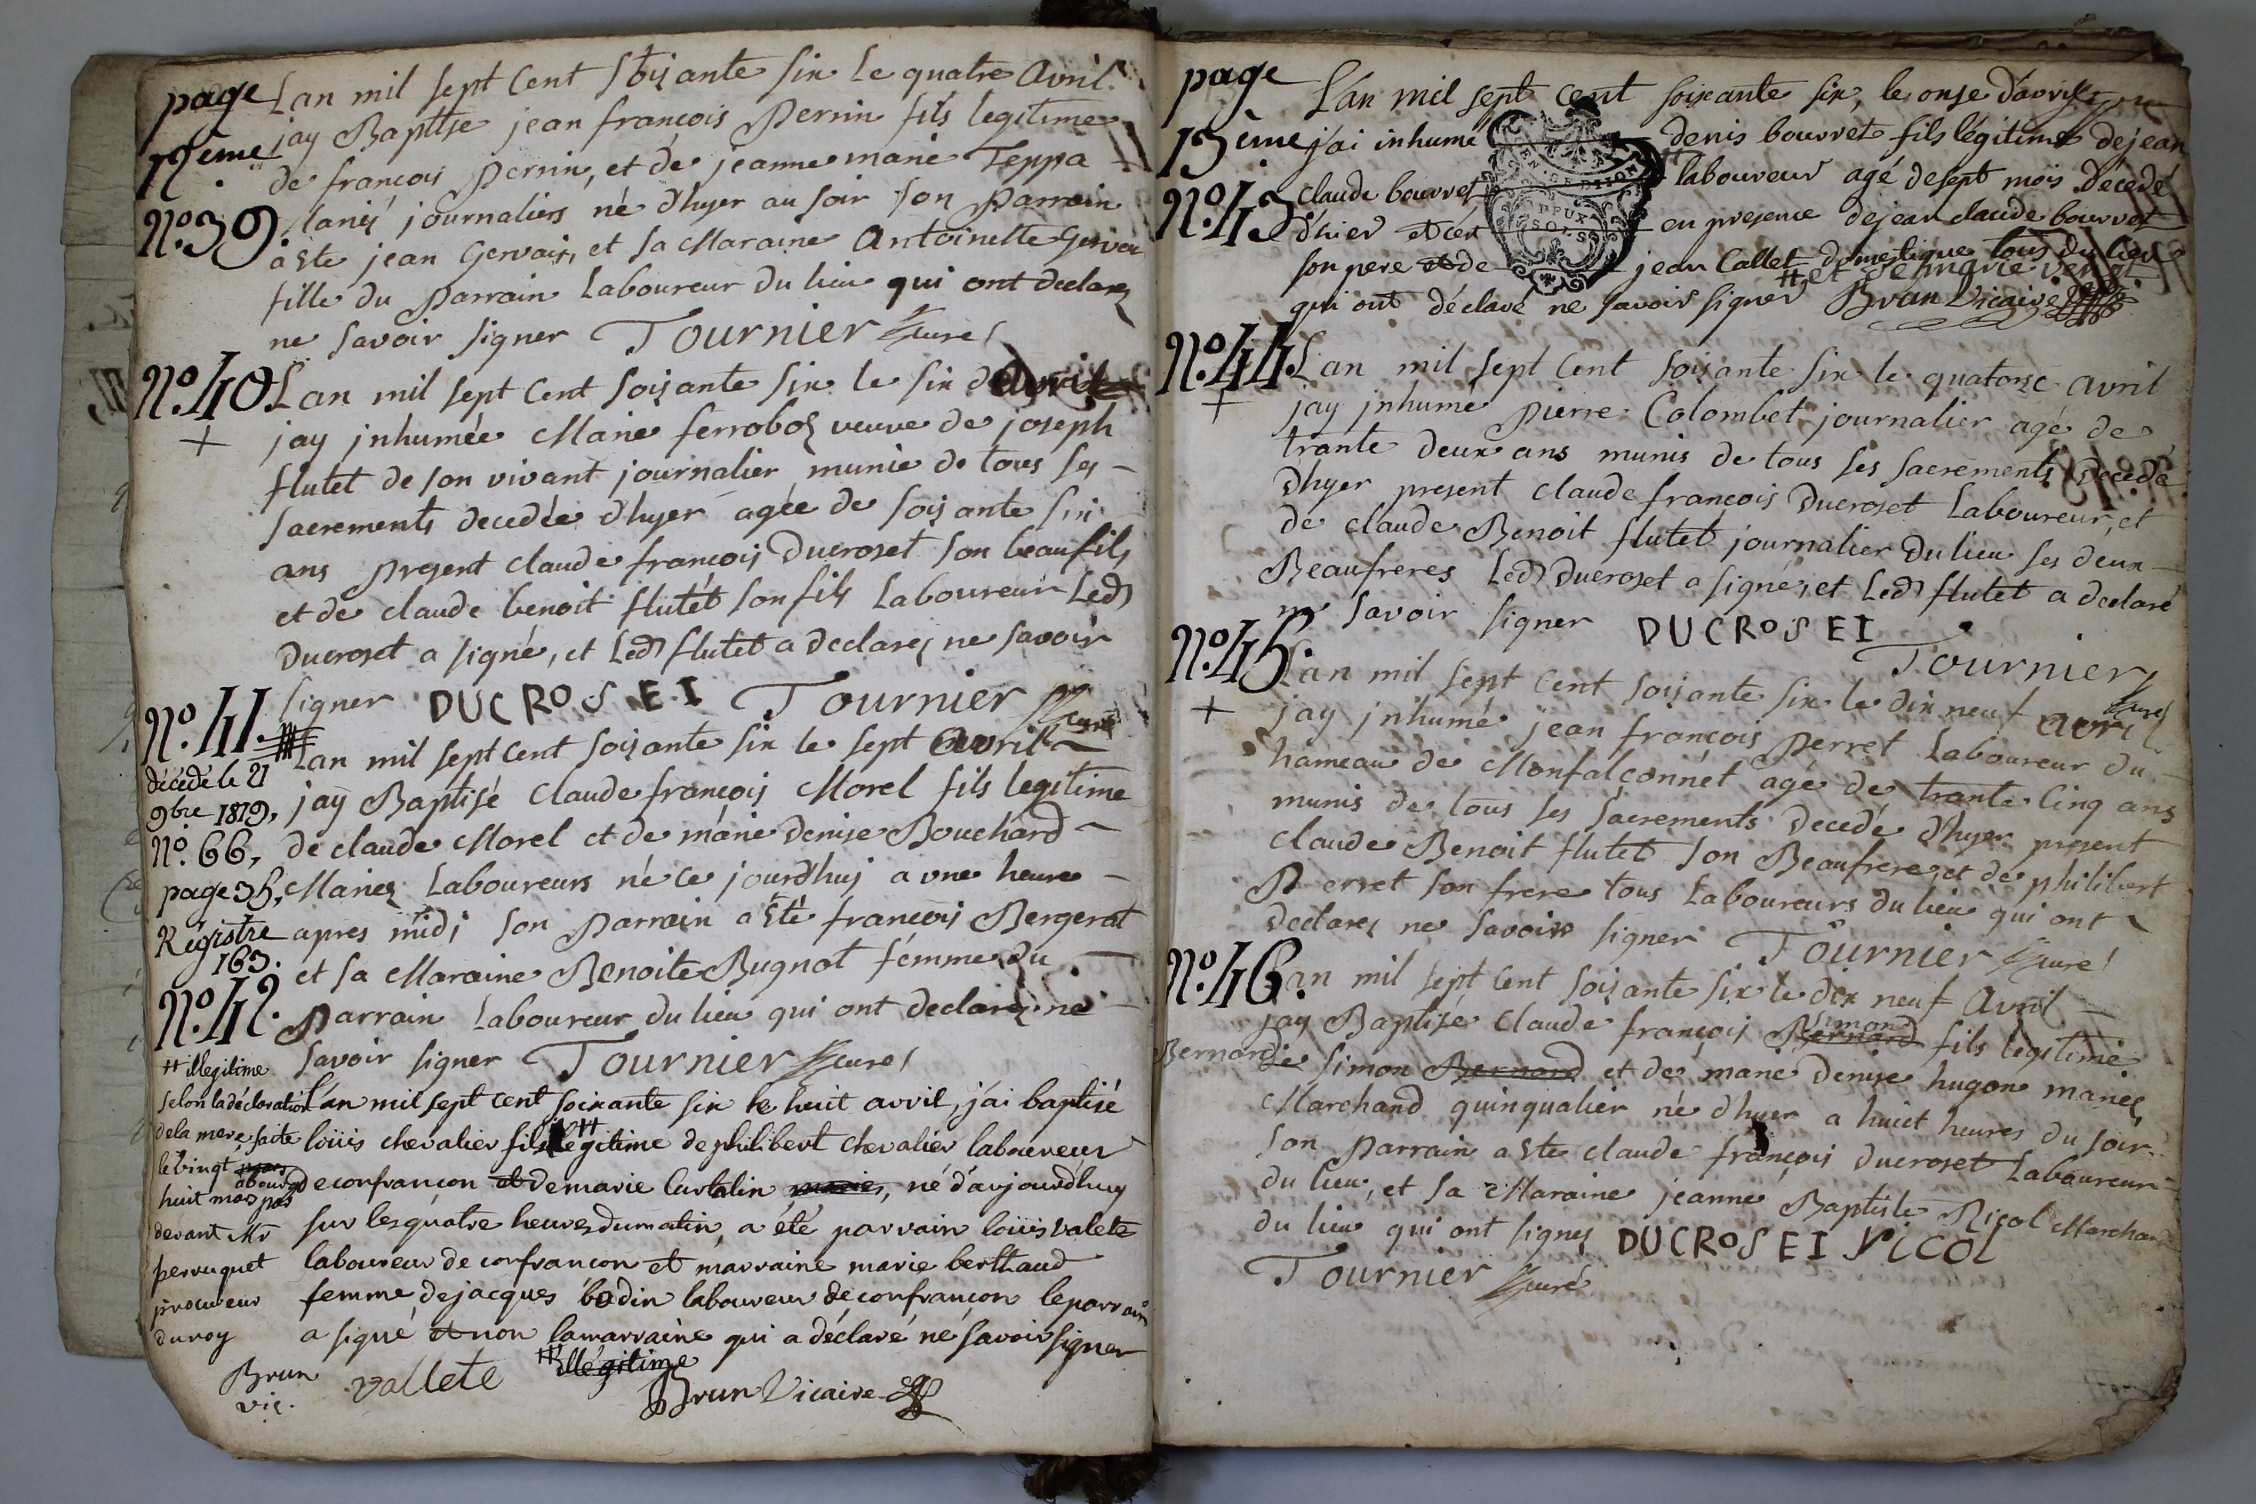 page
12ème
N°. 39.
Lan mil sept Cent Soisante six Le quatre Avril
jay Baptise jean françois Perrin fils legitime
de françois Perrin, et de jeanne marie Teppa
Mariés journaliers né d'hyer au soir son Parrain
a Ete jean Gervais, et sa Maraine Antoinette Gervais
fille du Parrain Laboureur du lieu qui ont declarez
ne Savoir signer Tournier Curé
N°. 40.
+
Lan mil sept Cent Soisante six le six d'avril
jay jnhumée Marie ferroboz veuve de joseph
flutet de son vivant journalier munie de tous ses
Sacrements decedée d'hyer agée de soisante six
ans present claude françois Ducroset son beaufils
et de claude benoit flutet son fils Laboureur Led
Ducroset a signé, et Led flutet a declarez ne savoir
signer DUCROSET Tournier Curé
N°. 41.
décédé le 21
9bre 1819,
N°. 66,
page 35,
Registre
163.
Lan mil sept cent soisante six le sept avril
jay Baptisé Claude françois Morel fils legitime
de claude Morel et de marie denise Bouchard
Mariez Laboureurs né ce jourdhuj a une heure
apres midj son Parrain a Eté françois Bergerat
et sa Maraine Benoite Bugnot femme du
Parrain Laboureur du lieu qui ont declarez ne
savoir signer Tournier Curé
N°. 42.
# illegitime
selon la déclaration
de la mere faite
le vingt mars
huit mars pas
devant Mr
perruquet
procureur
du roy
Brun
vic.
L'an mil sept cent soixante six le huit avril, j'ai baptisé
loüis chevalier fils legitime de philibert chevalier laboureur
de confrançon et de marie Curtalin mariés, né d'aujourdhuy
sur les quatre heures du matin, a été parrain loüis valete
laboureur de confrancon et marraine marie berthaud
femme de jacques bodin laboureur de confrancon le parrain
a signé et non la marraine qui a déclaré né savoir signer
vallete # illégitime
Brun Vicaire
page
13ème
N°. 43
L'an mil sept cent soixante six, le onze d'avril
j'ai inhumé denis bouvret fils légitime de jean
claude bouvret laboureur agé de sept mois décédé
d'hier en presence de jean claude bouvret
son pere et de jean Callet domestique tous du lieu
# et de marie
qui ont déclaré ne savoir signer Brun Vicaire
GEN
DEUX
SOLS
N°. 44.
+
Lan mil sept Cent soisante six le quatorze avril
jay jnhumé Pierre Colombet journalier agé de
trante deux ans munis de tous ses sacrements decedé
dhyer present claude françois Ducroset Laboureur, et
de claude Benoit flutet journalier du lieu ses deux
Beaufreres Led Ducroset a signé, et Led flutet a declaré
ne savoir signer DUCROSET
Tournier Curé
N°. 45.
+
Lan mil sept Cent soisante six le dix neuf avril
jay jnhumé jean françois Perret Laboureur du
hameau de Monfalconnet agé de trante Cinq ans
munis de tous ses sacrements decedé d'hyer present
claude Benoit flutet son Beaufrere et de philibert
Perret son frere tous Laboureurs du lieu qui ont
declarez ne savoir signer Tournier Curé
N°. 46.
Lan mil sept Cent soisante six le dix neuf Avril
jay Baptisé Claude françois Bernard simon fils legitime
Bernard de simon Bernard et de marie denise hugon mariez
Marchand quinqualier né d'hyer a huict heures du soir
son Parrain a Ete claude françois Ducroset Laboureur
du lieu, et sa Maraine jeanne Baptiste Nicol Marchand
du lieu qui ont signez DUCROSET NICOL
Tournier Curé